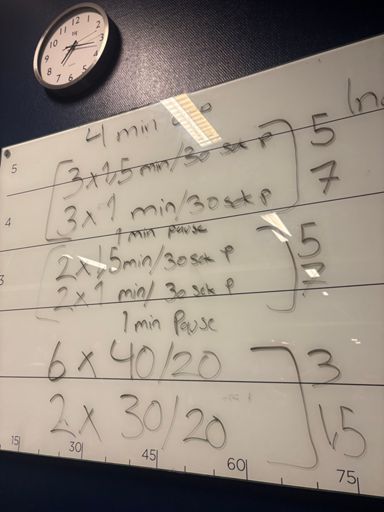 12 1 2 3 4 5 6 7 8 9 10 11
4 min
(In
5
3x1,5 min/30 sek p
5
3x1 min/30 sek p
7
4
1 min pause
2x1,5min/30sek p
5
3
2x1 min/ 30 sek p
1 min Pause
6x 40/20
3
2x 30/20
1,5
15 30 45 60 75